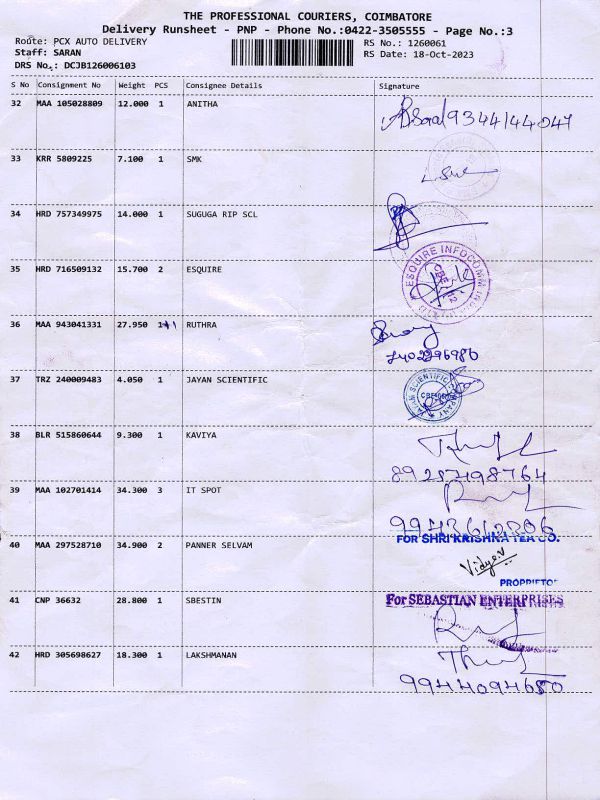 THE PROFESSIONAL COURIERS, COIMBATORE
Delivery Runsheet - PNP - Phone No.:0422-3505555 - Page No.:3
Route: PCX AUTO DELIVERY RS No.: 1260061
Staff: SARAN RS Date: 18-Oct-2023
DRS No.: DCJB126006103
S No Consignment No Weight PCS Consignee Details Signature
32 MAA 105028809 12.000 1 ANITHA 9344144047
33 KRR 5809225 7.100 1 SMK
34 HRD 757349975 14.000 1 SUGUGA RIP SCL
35 HRD 716509132 15.700 2 ESQUIRE ESQUIRE INFOCOMM
36 MAA 943041331 27.950 1 RUTHRA
7402296986
37 TRZ 240009483 4.050 1 JAYAN SCIENTIFIC JAYAN SCIENTIFIC COMPANY
38 BLR 515860644 9.300 1 KAVIYA
8925498764
39 MAA 102701414 34.300 3 IT SPOT
9943612806
FOR SHRI KRISHNA TEA CO.
40 MAA 297528710 34.900 2 PANNER SELVAM Vidya.V
PROPRIETOR
41 CNP 36632 28.800 1 SBESTIN For SEBASTIAN ENTERPRISES
42 HRD 305698627 18.300 1 LAKSHMANAN
9944094680